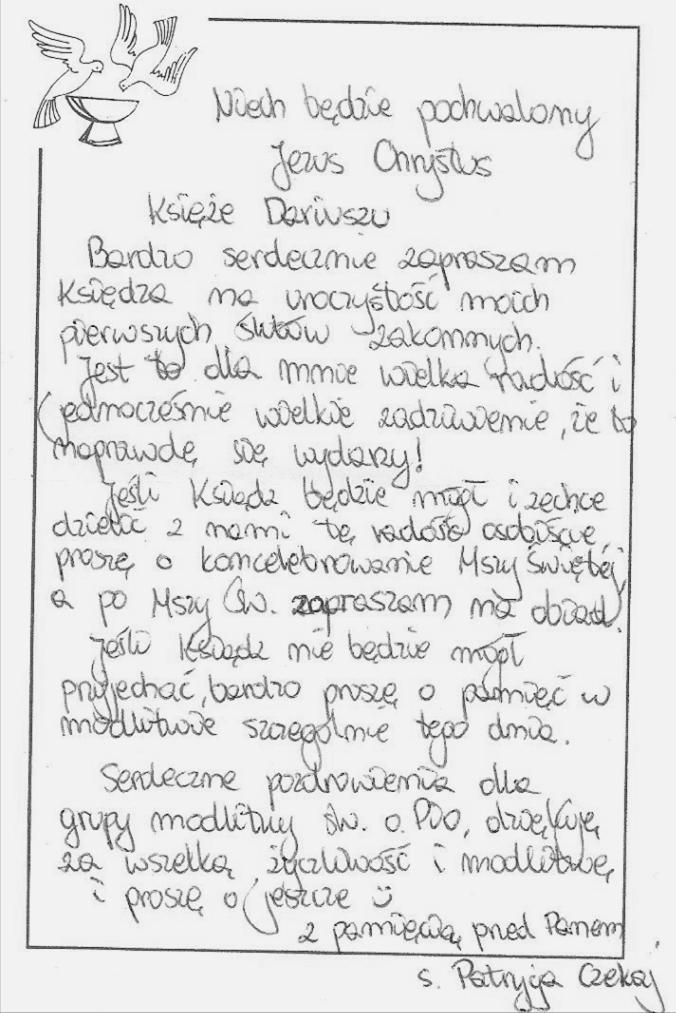 Niech będzie pochwalony
Jezus Chrystus
Księże Dariuszu
Bardzo serdecznie zapraszam
Księdza na uroczystość moich
pierwszych ślubów zakonnych.
Jest to dla mnie wielka radość i
jednocześnie wielkie zadziwienie, że to
naprawdę się wydarzy!
Jeśli Ksiądz będzie mógł i zechce
dzielić z nami tę radość osobiście,
proszę o koncelebrowanie Mszy Świętej,
a po Mszy Św. zapraszam na obiad.
Jeśli Ksiądz nie będzie mógł
przyjechać, bardzo proszę o pamięć w
modlitwie szczególnie tego dnia.
Serdeczne pozdrowienia dla
grupy modlitwy św. o. Pio, dziękuję
za wszelką życzliwość i modlitwę,
i proszę o jeszcze ☺
z pamięcią przed Panem
s. Patrycja Czekaj